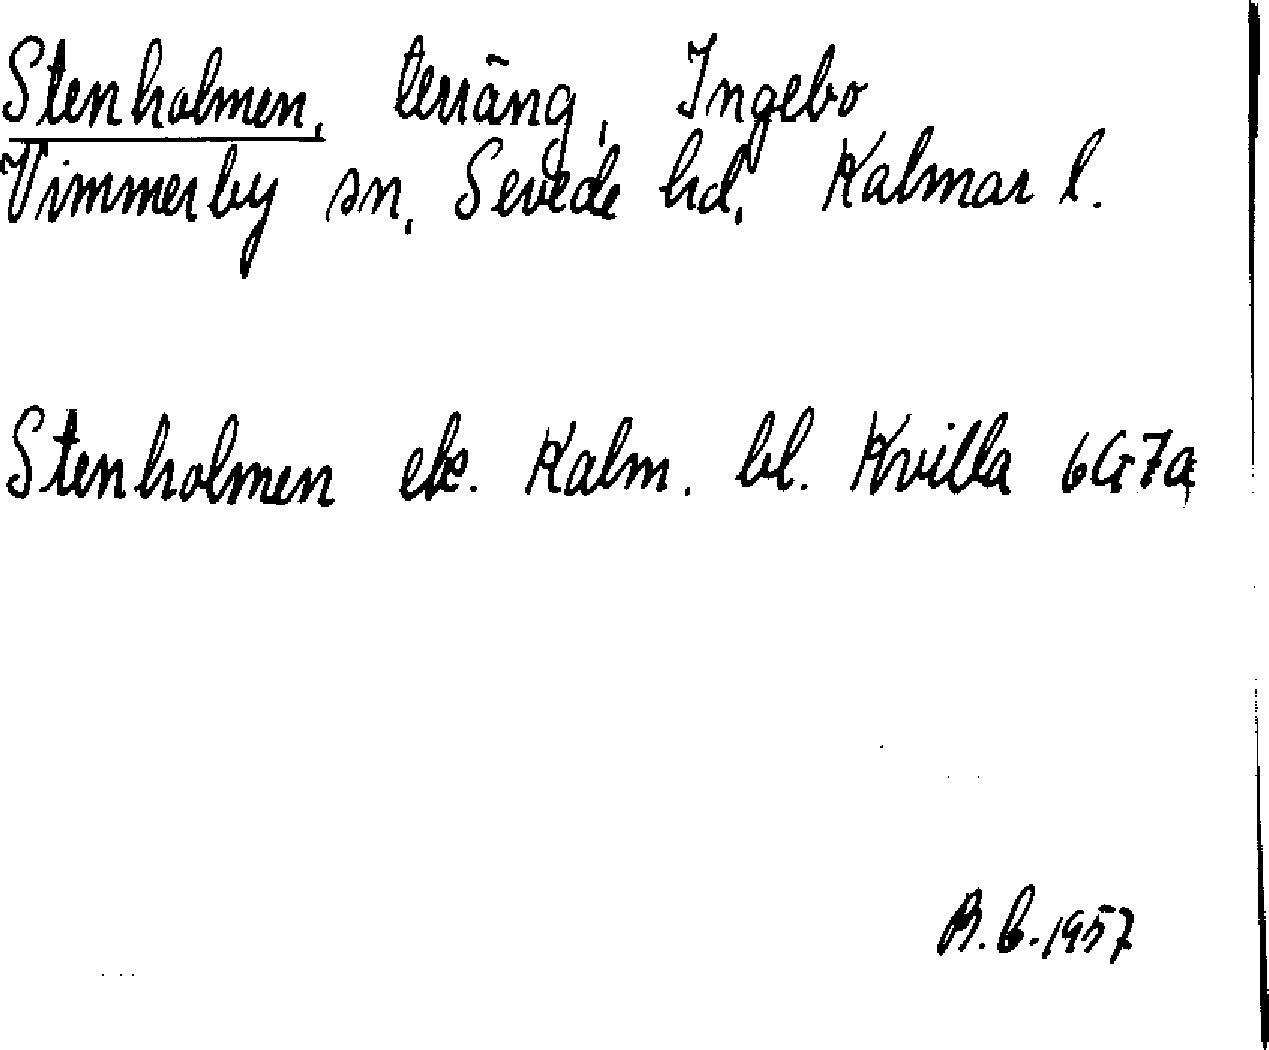 Stenholmen, terräng, Ingebo
Vimmerby sn, Sevede hd, Kalmar l.
Stenholmen ek. Kalm. bl. Kvilla 6G7a
B.b. 1957